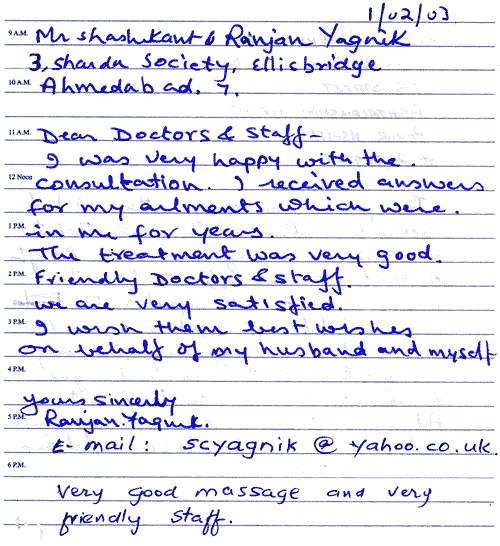 1/02/03
9 A.M. Mr Shashikant & Ranjan Yagnik
3, Sharda Society, Ellicbridge
10 A.M. Ahmedabad. 7.
11 A.M. Dear Doctors & Staff-
I was very happy with the.
12 Noon consultation. I received answers
for my ailments which were.
1 P.M. in me for years.
The treatment was very good.
2 P.M. Friendly Doctors & staff.
we are very satisfied.
3 P.M. I wish them best wishes
on behalf of my husband and myself
4 P.M.
yours sincerely
5 P.M. Ranjan.Yagnik.
E-mail: scyagnik @ yahoo.co.uk.
6 P.M.
Very good massage and very
friendly staff.